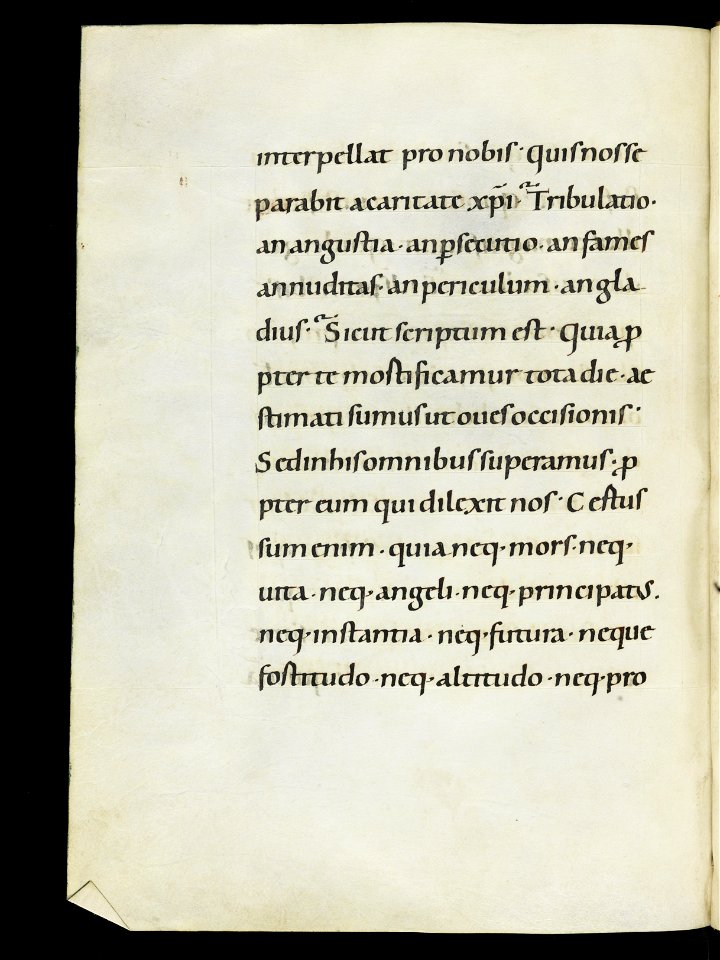 interpellat pro nobis· Quis nos se
parabit a caritate xp̄i· Tribulatio·
an angustia· an ꝑsecutio· an fames
an nuditas· an periculum· an gla
dius· Sicut scriptum est· Quia ꝓ
pter te mortificamur tota die· ae
stimati sumus ut oues occisionis·
Sed in his omnibus superamus· ꝓ
pter eum qui dilexit nos· Certus
sum enim· quia neq· mors· neq·
uita· neq· angeli· neq· principatus.
neq· instantia· neq· futura· neque
fortitudo· neq· altitudo· neq· pro